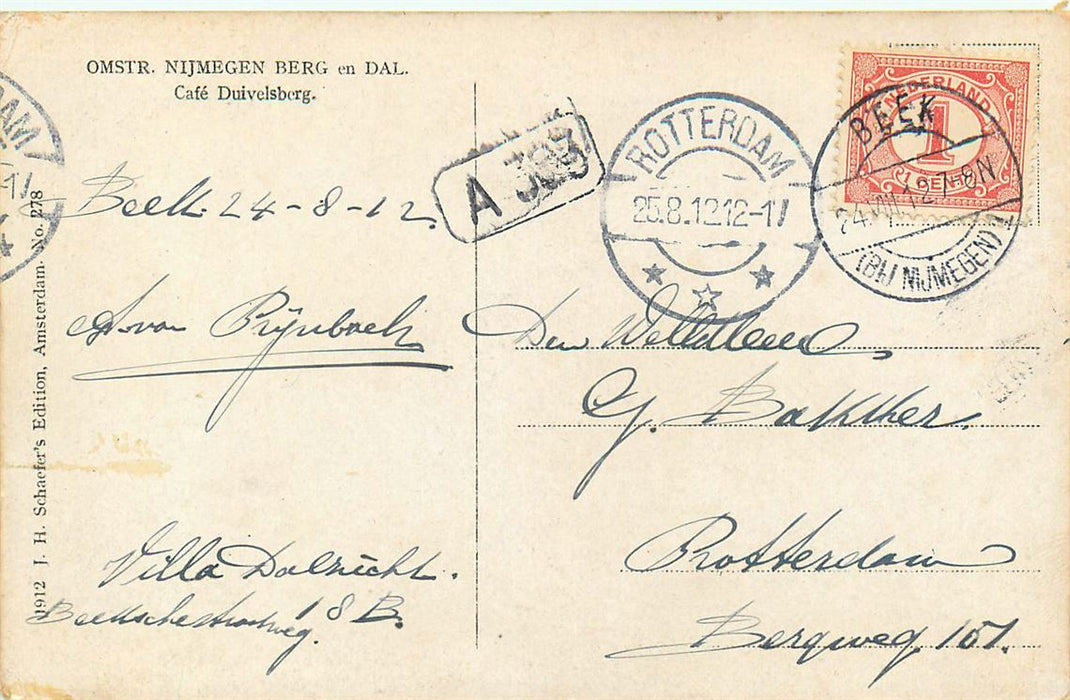 OMSTR. NIJMEGEN BERG en DAL.
Café Duivelsberg.
Beek. 24-8-12.
A. van Rijnbach
Villa Dalzicht.
Beekschestraatweg. 18 B.
1912 J. H. Schaefer's Edition, Amsterdam. No. 278
A 383
ROTTERDAM
25.8.12.12-1
NEDERLAND
1
1 CENT
BEEK
24.VIII.12.7-8N
(BIJ NIJMEGEN)
Den
G. Bakker.
Rotterdam
Bergweg 151.
DAM